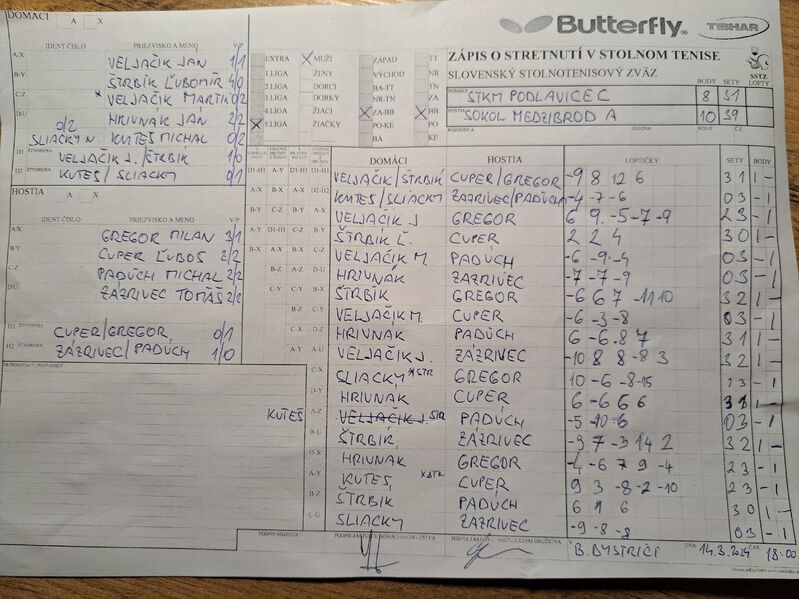 DOMÁCI A X
Butterfly TIBHAR
IDENT ČÍSLO PRIEZVISKO A MENO V/P
A/X VELJAČIK JÁN 1/1
B/Y ŠTRBÍK ĽUBOMÍR 4/0
C/Z * VELJAČIK MARTIN 0/2
D/U HRIVNÁK JÁN 2/2
0/2 SLIACKY N. KUTEŠ MICHAL 0/2
D1 ŠTVORHRA VELJAČIK J./ŠTRBÍK 1/0
D2 ŠTVORHRA KUTEŠ/SLIACKY 0/1
EXTRA X MUŽI ZÁPAD TT
1.LIGA ŽENY VÝCHOD NR
2.LIGA DORCI BA-TT TN
3.LIGA DORKY NR-TN ZA
4.LIGA ŽIACI X ZA-BB X BB
X 5.LIGA ŽIAČKY PO-KE PO
BA KE
ZÁPIS O STRETNUTÍ V STOLNOM TENISE
SLOVENSKÝ STOLNOTENISOVÝ ZVÄZ
SSTZ
BODY SETY LOPTY
DOMÁCI STKM PODLAVICE C 8 31
HOSTIA SOKOL MEDZIBROD A 10 39
ROZHODCA SEZÓNA KOLO Č.
HOSTIA A X
IDENT ČÍSLO PRIEZVISKO A MENO V/P
A/X GREGOR MILAN 3/1
B/Y CUPER ĽUBOŠ 2/2
C/Z PADÚCH MICHAL 2/2
D/U ZÁZRIVEC TOMÁŠ 2/2
H1 ŠTVORHRA CUPER/GREGOR 0/1
H2 ŠTVORHRA ZÁZRIVEC/PADÚCH 1/0
PRIPOMIENKY POZNÁMKY
DOMÁCI HOSTIA LOPTIČKY SETY BODY
VELJAČIK/ŠTRBÍK CUPER/GREGOR -9 8 12 6 3 1 1 -
KUTEŠ/SLIACKY ZÁZRIVEC/PADÚCH -4 -7 -6 0 3 - 1
VELJAČIK J GREGOR 6 9 -5 -7 -9 2 3 - 1
ŠTRBÍK Ľ. CUPER 2 2 4 3 0 1 -
VELJAČIK M. PADÚCH -6 -9 -4 0 3 - 1
HRIVNÁK ZÁZRIVEC -7 -7 -9 0 3 - 1
ŠTRBÍK GREGOR -6 6 7 -11 10 3 2 1 -
VELJAČIK M. CUPER -6 -3 -8 0 3 - 1
HRIVNÁK PADÚCH 6 -6 8 7 3 1 1 -
VELJAČIK J. ZÁZRIVEC -10 8 8 -8 3 3 2 1 -
SLIACKY *STR GREGOR 10 -6 -8 -15 1 3 - 1
HRIVNÁK CUPER 6 -6 6 6 3 1 1 -
KUTEŠ VELJAČIK J. STR PADÚCH -5 -10 -6 0 3 - 1
ŠTRBÍK ZÁZRIVEC -9 7 -3 14 2 3 2 1 -
HRIVNÁK GREGOR -4 -6 7 9 -4 2 3 - 1
KUTEŠ *STR CUPER 9 3 -8 -2 -10 2 3 - 1
ŠTRBÍK PADÚCH 6 9 6 3 0 1 -
SLIACKY ZÁZRIVEC -9 -8 -8 0 3 - 1
PODPIS ROZHODCU PODPIS ZÁSTUPCU DOMÁCEHO DRUŽSTVA PODPIS ZÁSTUPCU HOSŤUJÚCEHO DRUŽSTVA V B. BYSTRICI DŇA 14.3.2024 ČAS 18:00